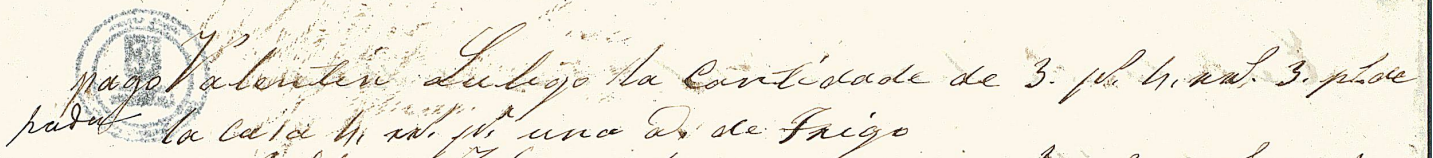 pago Valentin Luligo la Cantidade de 3. ps. 4. rrs. 3. ps. de
la casa 4. rrs. pr. una a. de Trigo